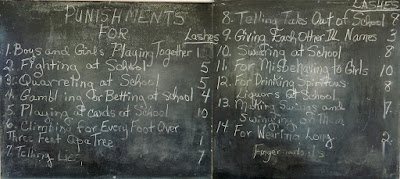 PUNISHMENTS
FOR Lashes
1. Boys and Girls Playing Together
2. Fighting at School 5
3. Quarreling at School 5
4. Gambling or Betting at School 4
5. Playing at cards at School 10
6. Climbing for Every Foot Over
Three Feet Up a Tree 1
7. Telling Lies 7
LASHES
8. Telling Tales Out of School 8
9. Giving Each Other Ill Names 3
10. Swearing at School 8
11. For Misbehaving to Girls 10
12. For Drinking Spirituous 8
Liquors at School
13. Making Swings and
Swinging on Them 7
14 For Wearing Long 2
Fingernails